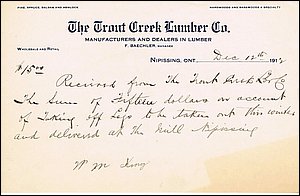 PINE, SPRUCE, BALSAM AND HEMLOCK
HARDWOODS AND BASSWOOD A SPECIALTY
The Trout Creek Lumber Co.
MANUFACTURERS AND DEALERS IN LUMBER
WHOLESALE AND RETAIL
F. BAECHLER, MANAGER
NIPISSING, ONT. Dec 12th 191
$15.00
Received from The Trout Creek Co
The Sum of Fifteen dollars on account
of Taking off Logs to be taken out this winter
and delivered at the Mill Nipissing
Wm King